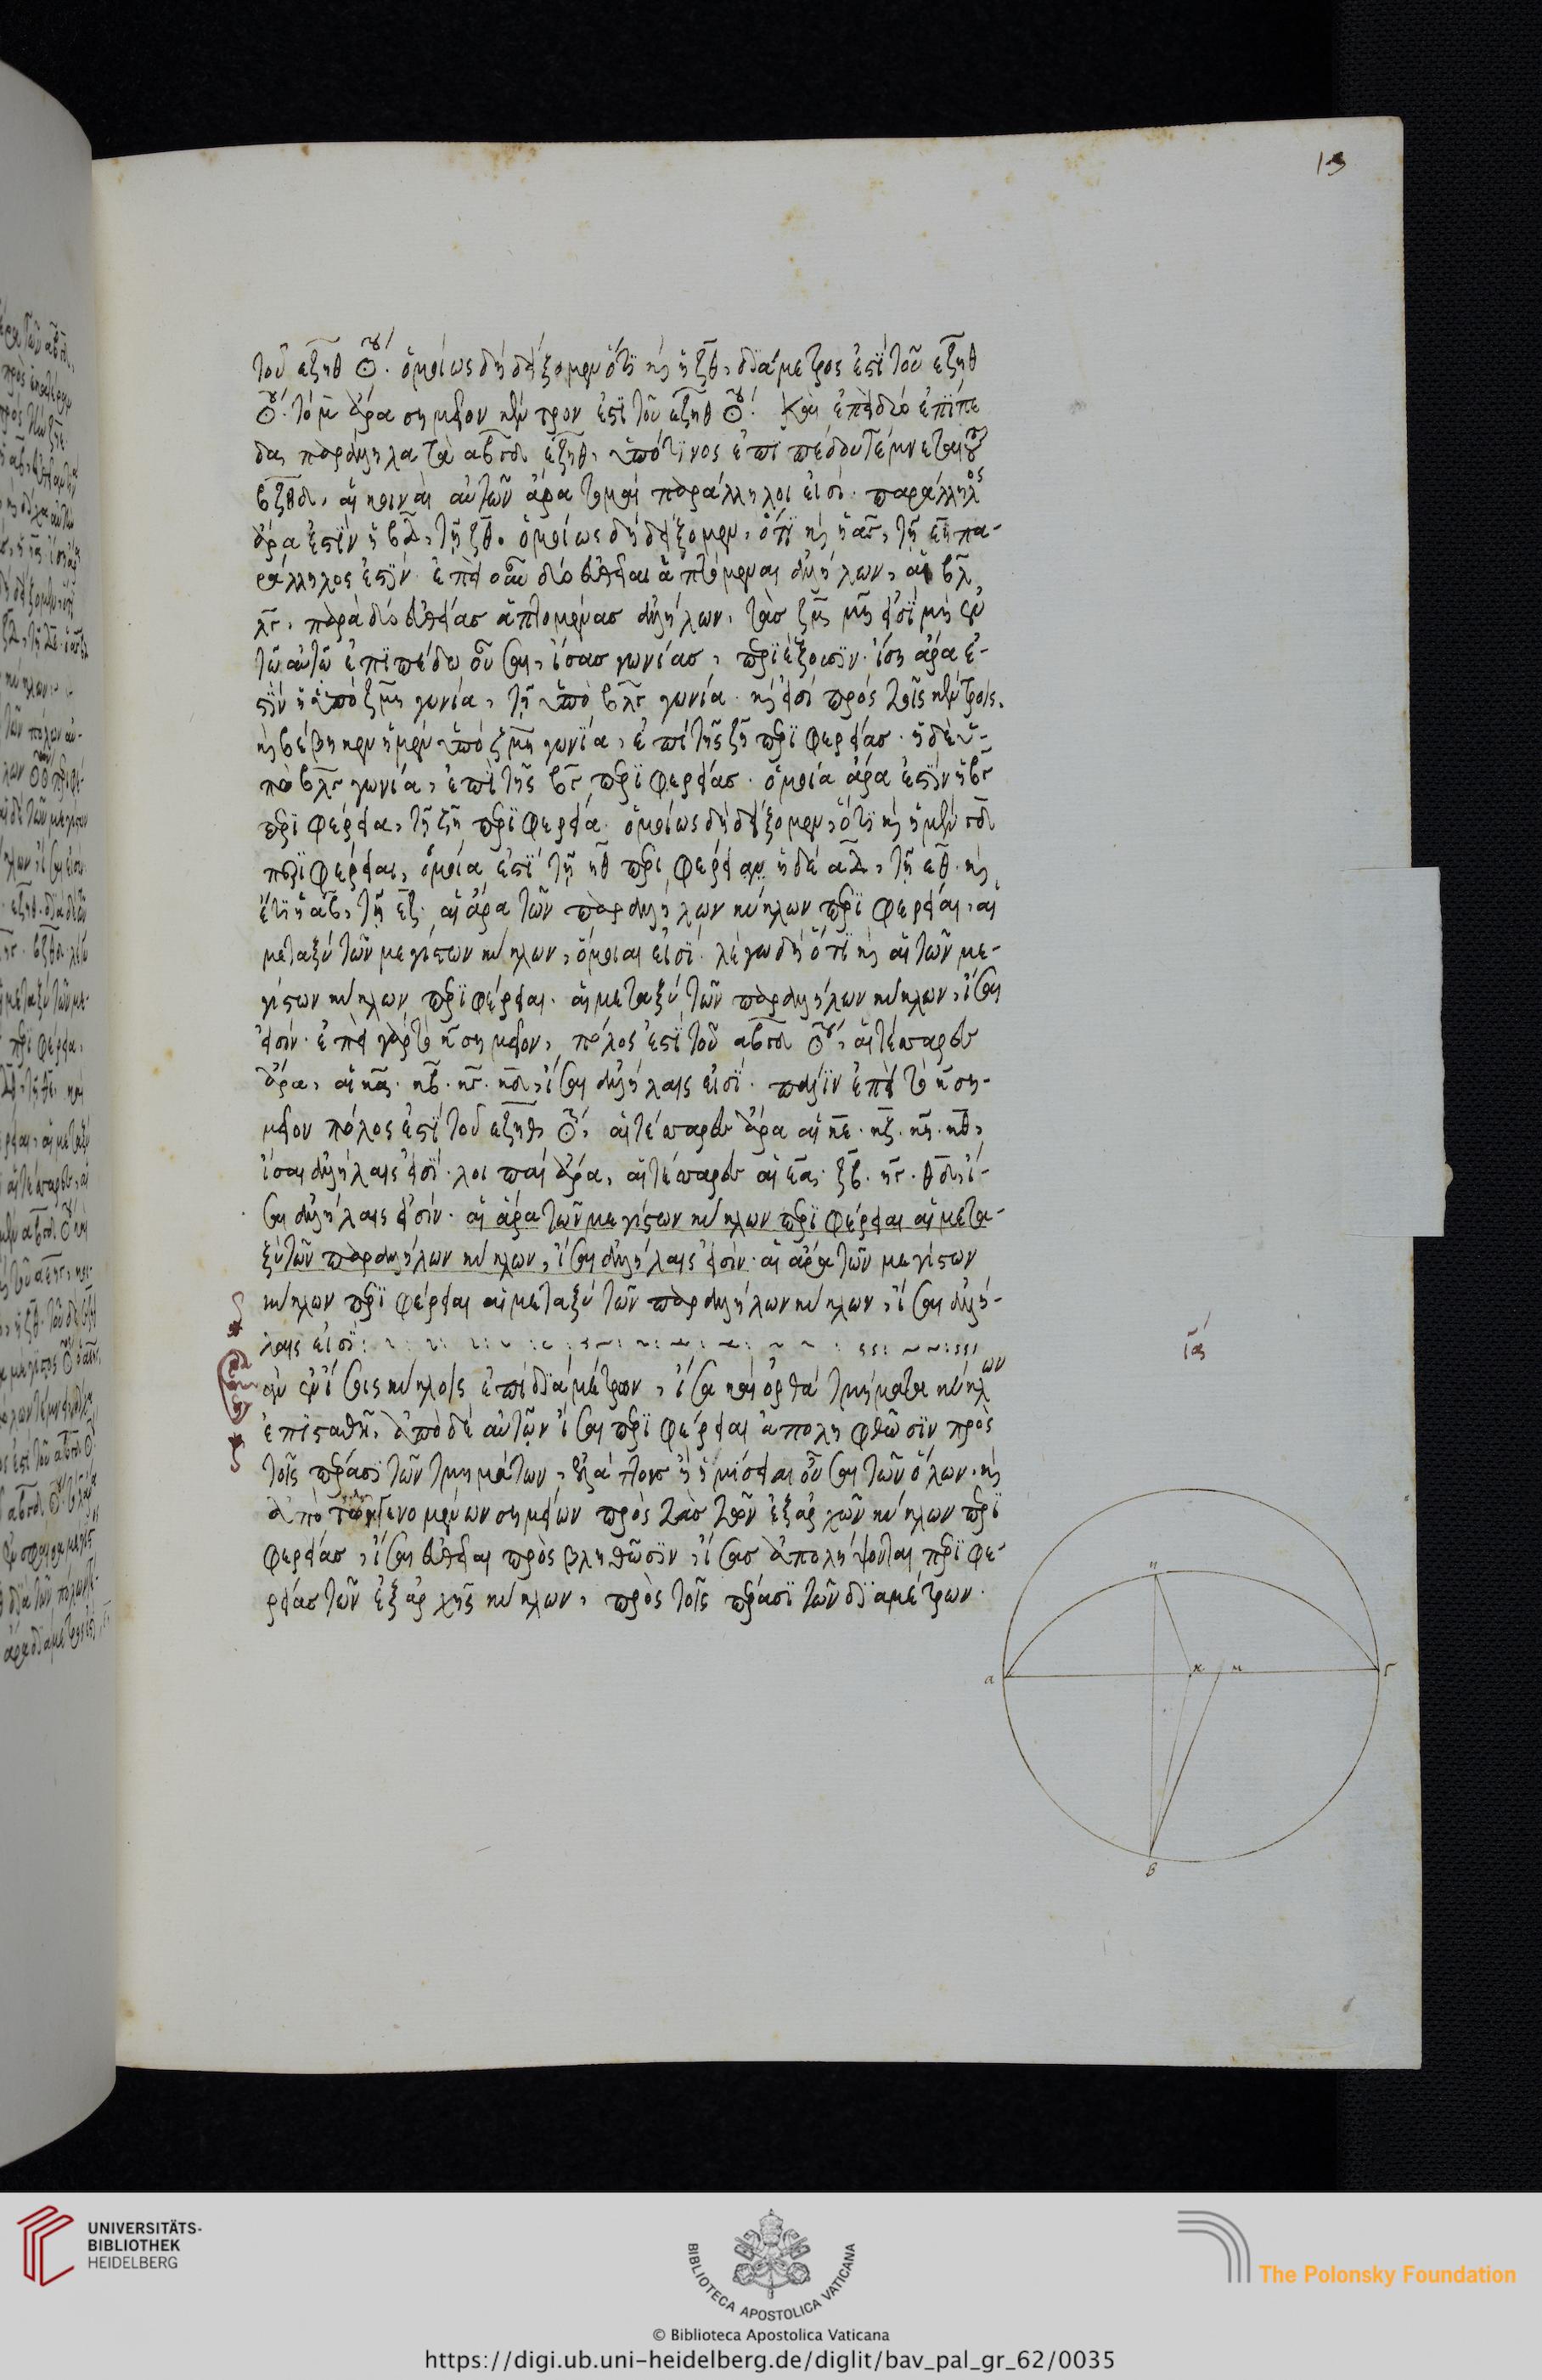 13
τοῦ εζηθ ☉ου. ὁμοίως δὴ δείξομεν ὅτι κὶ ἡ ζθ, διάμετρος ἐστὶ τοῦ εζηθ
☉ου. τὸ μ ἄρα σημεῖον κέντρον ἐστὶ τοῦ εζηθ ☉ου. Καὶ ἐπεὶ δύο ἐπίπε
δα παράλληλα τὰ αβγδ εζηθ, ὑπό τινος ἐπιπέδου τέμνεται τοῦ
βζθδ, αἱ κοιναὶ αὐτῶν ἄρα τομαὶ παράλληλοι εἰσί. παράλληλος
ἄρα ἐστὶν ἡ βδ, τῇ ζθ. ὁμοίως δὴ δείξομεν, ὅτι κὶ ἡ αγ, τῇ εη πα-
ράλληλος ἐστὶν. ἐπεὶ οὖν δύο εὐθεῖαι ἁπτόμεναι ἀλλήλων, αἱ βλ
λγ, παρὰ δύο εὐθείας ἁπτομένας ἀλλήλων, τὰς ζμ μη εἰσὶ μὴ ἐν
τῶ αὐτῶ ἐπιπέδω οὖσαι, ἴσας γωνίας, περιέξουσιν. ἴση ἄρα ἐ-
στὶν ἡ ὑπὸ ζμη γωνία, τῇ ὑπὸ βλγ γωνία. κὶ εἰσὶ πρὸς τοῖς κέντροις.
κὶ βέβηκεν ἡ μὲν ὑπὸ ζμη γωνία, ἐπὶ τῆς ζη περιφερείας. ἡ δὲ ὑ-
πὸ βλγ γωνία, ἐπὶ τῆς βγ περιφερείας. ὁμοία ἄρα ἐστὶν ἡ βγ
περιφέρεια, τῇ ζη περιφερεία. ὁμοίως δὴ δείξομεν, ὅτι κὶ ἡ μὲν γδ
περιφέρεια, ὁμοία ἐστὶ τῇ ηθ περιφερεία ἡ δὲ αδ, τῇ εθ. κὶ
ἔτι ἡ αβ, τῇ εζ. αἱ ἄρα τῶν παραλλήλων κύκλων περιφέρειαι, αἱ
μεταξὺ τῶν μεγίστων κύκλων, ὅμοιαι εἰσὶ. λέγω δὴ ὅτι κὶ αἱ τῶν με-
γίστων κύκλων περιφέρειαι. αἱ μεταξὺ τῶν παραλλήλων κύκλων, ἴσαι
εἰσίν. ἐπεὶ γὰρ τὸ κ σημεῖον, πόλος ἐστὶ τοῦ αβγδ ☉ου, αἱ τέσσαρες
ἄρα, αἱ κα. κβ. κγ. κδ, ἴσαι ἀλλήλαις εἰσί. πάλιν ἐπεὶ τὸ κ ση-
μεῖον πόλος ἐστὶ τοῦ εζηθ ☉ου, αἱ τέσσαρες ἄρα αἱ κε. κζ. κη. κθ,
ἴσαι ἀλλήλαις εἰσὶ. λοιπαὶ ἄρα, αἱ τέσσαρες αἱ εα. ζβ. ηγ. θδ, ἴ-
σαι ἀλλήλαις εἰσίν. αἱ ἄρα τῶν μεγίστων κύκλων περιφέρειαι αἱ μετα-
ξὺ τῶν παραλλήλων κύκλων, ἴσαι ἀλλήλαις εἰσίν. αἱ ἄρα τῶν μεγίστων
κύκλων περιφέρειαι αἱ μεταξὺ τῶν παραλλήλων κύκλων, ἴσαι ἀλλή-
λαις εἰσί:
ἐὰν ἐν ἴσοις κύκλοις ἐπὶ διαμέτρων, ἴσα καὶ ὀρθὰ τμήματα κύκλων
ἐπισταθῆ, ἀπὸ δὲ αὐτῶν ἴσαι περιφέρειαι ἀποληφθῶσιν πρὸς
τοῖς πέρασι τῶν τμημάτων, ἐλάττους ἢ ἡμίσειαι οὖσαι τῶν ὅλων. κὶ
ἀπὸ τῶν γενομένων σημείων πρὸς τὰς τῶν ἐξ ἀρχῶν κύκλων περι
φερείας, ἴσαι εὐθεῖαι προσβληθῶσιν, ἴσας ἀπολήψονται περιφε-
ρείας τῶν ἐξ ἀρχῆς κύκλων, πρὸς τοῖς πέρασι τῶν διαμέτρων.
ια
η
α κ μ γ
β
UNIVERSITÄTS-
BIBLIOTHEK
HEIDELBERG
BIBLIOTECA APOSTOLICA VATICANA
The Polonsky Foundation
© Biblioteca Apostolica Vaticana
https://digi.ub.uni-heidelberg.de/diglit/bav_pal_gr_62/0035